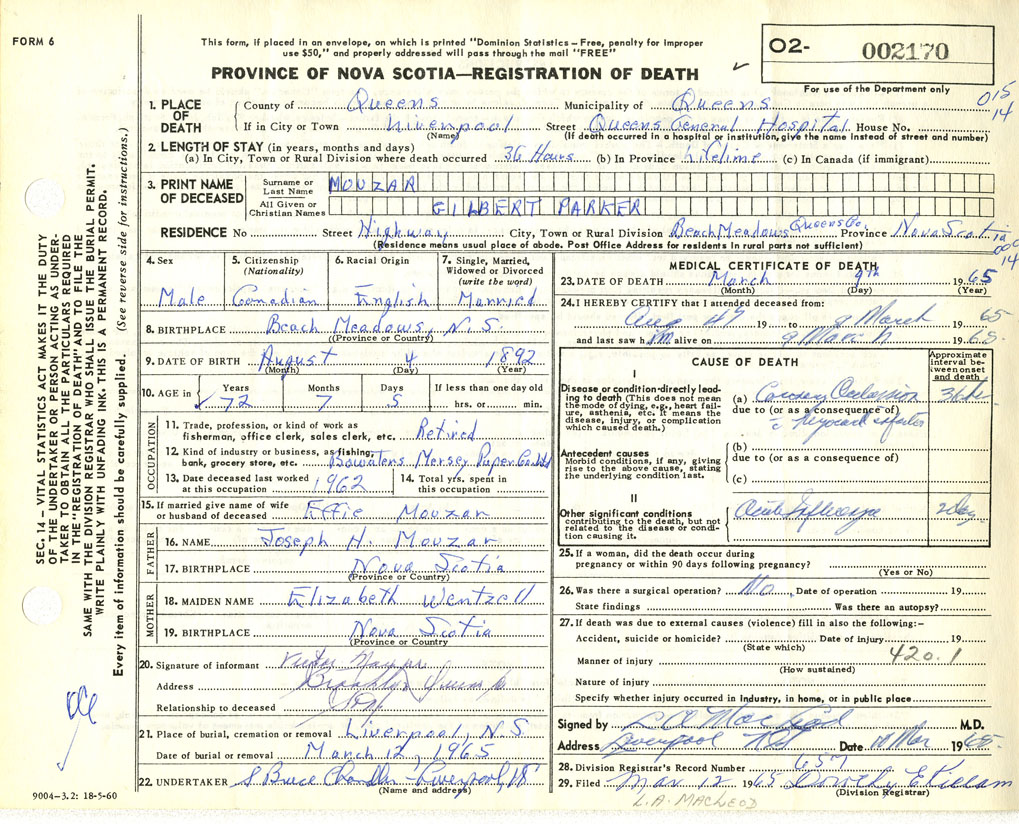 FORM 6
This form, if placed in an envelope, on which is printed "Dominion Statistics – Free, penalty for improper
use $50," and properly addressed will pass through the mail "FREE"
PROVINCE OF NOVA SCOTIA—REGISTRATION OF DEATH
O2- 002170
For use of the Department only
015
14
1. PLACE OF DEATH
County of Queens Municipality of Queens
If in City or Town Liverpool Street Queens General Hospital House No.
(Name) (If death occurred in a hospital or institution, give the name instead of street and number)
2. LENGTH OF STAY (in years, months and days)
(a) In City, Town or Rural Division where death occurred 36 Hours (b) In Province Lifetime (c) In Canada (if immigrant)
3. PRINT NAME OF DECEASED
Surname or Last Name MOUZAR
All Given or Christian Names GILBERT PARKER
RESIDENCE No Street Highway City, Town or Rural Division Beach Meadows Queens Co. Province Nova Scotia
(Residence means usual place of abode. Post Office Address for residents in rural parts not sufficient)
006
14
4. Sex Male
5. Citizenship (Nationality) Canadian
6. Racial Origin English
7. Single, Married, Widowed or Divorced (write the word) Married
8. BIRTHPLACE Beach Meadows, N.S.
(Province or Country)
9. DATE OF BIRTH August 4 1892
(Month) (Day) (Year)
10. AGE in Years Months Days If less than one day old
72 7 5 hrs. or min.
OCCUPATION
11. Trade, profession, or kind of work as
fisherman, office clerk, sales clerk, etc. Retired
12. Kind of industry or business, as fishing,
bank, grocery store, etc. Bowaters Mersey Paper Co Ltd
13. Date deceased last worked
at this occupation 1962
14. Total yrs. spent in
this occupation
15. If married give name of wife
or husband of deceased Effie Mouzar
FATHER
16. NAME Joseph H. Mouzar
17. BIRTHPLACE Nova Scotia
(Province or Country)
MOTHER
18. MAIDEN NAME Elizabeth Wentzell
19. BIRTHPLACE Nova Scotia
(Province or Country
20. Signature of informant Victor
Address Brooklyn Queens Co
Relationship to deceased Son
21. Place of burial, cremation or removal Liverpool, N.S
Date of burial or removal March 12, 1965
22. UNDERTAKER S Bruce Chandler Liverpool, NS
(Name and address)
MEDICAL CERTIFICATE OF DEATH
23. DATE OF DEATH March 9th 1965
(Month) (Day) (Year)
24. I HEREBY CERTIFY that I attended deceased from:
Aug 47 19 to 9 March 65
and last saw him alive on 9 March 1965.
CAUSE OF DEATH
Approximate interval between onset and death
I
Disease or condition directly leading to death (This does not mean the mode of dying, e.g., heart failure, asthenia, etc. It means the disease, injury, or complication which caused death.)
(a) Coronary Occlusion 36 hr
due to (or as a consequence of)
c Myocard infarction
(b)
Antecedent causes
Morbid conditions, if any, giving rise to the above cause, stating the underlying condition last.
due to (or as a consequence of)
(c)
II
Other significant conditions
contributing to the death, but not related to the disease or condition causing it.
Acute Influenza 2 day
25. If a woman, did the death occur during
pregnancy or within 90 days following pregnancy?
(Yes or No)
26. Was there a surgical operation? No Date of operation 19
State findings Was there an autopsy?
27. If death was due to external causes (violence) fill in also the following:–
Accident, suicide or homicide? Date of injury 19
(State which)
420.1
Manner of injury
(How sustained)
Nature of injury
Specify whether injury occurred in industry, in home, or in public place
Signed by L A MacLeod M.D.
Address Liverpool NS Date 10 Mar 1965
28. Division Registrar's Record Number 657
29. Filed Mar. 12 1965 Dorothy E Killam
(Division Registrar)
L.A. MACLEOD
SEC. 14 – VITAL STATISTICS ACT MAKES IT THE DUTY
OF THE UNDERTAKER OR PERSON ACTING AS UNDER-
TAKER TO OBTAIN ALL THE PARTICULARS REQUIRED
IN THE "REGISTRATION OF DEATH" AND TO FILE THE
SAME WITH THE DIVISION REGISTRAR WHO SHALL ISSUE THE BURIAL PERMIT.
WRITE PLAINLY WITH UNFADING INK. THIS IS A PERMANENT RECORD.
Every item of information should be carefully supplied. (See reverse side for instructions.)
9004–3.2: 18-5-60